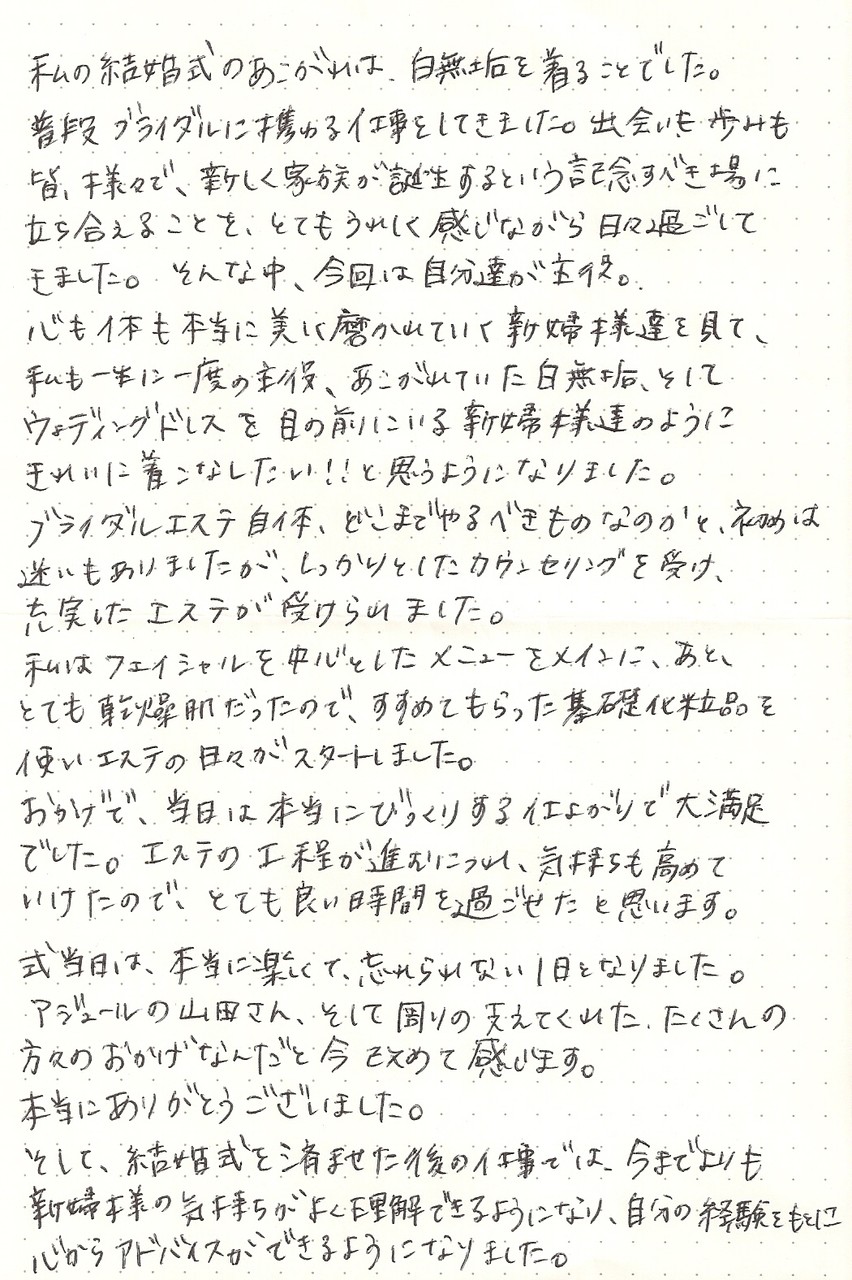 私の結婚式のあこがれは、白無垢を着ることでした。
普段ブライダルに携わる仕事をしてきました。出会いも歩みも
皆、様々で、新しく家族が誕生するという記念すべき場に
立ち合えることを、とてもうれしく感じながら日々過ごして
きました。そんな中、今回は自分達が主役。
心も体も本当に美しく磨かれていく新婦様達を見て、
私も一生に一度の主役、あこがれていた白無垢、そして
ウェディングドレスを目の前にいる新婦様達のように
きれいに着こなしたい!!と思うようになりました。
ブライダルエステ自体、どこまでやるべきものなのかと、初めは
迷いもありましたが、しっかりとしたカウンセリングを受け、
充実したエステが受けられました。
私はフェイシャルを中心としたメニューをメインに、あと、
とても乾燥肌だったので、すすめてもらった基礎化粧品を
使いエステの日々がスタートしました。
おかげで、当日は本当にびっくりする仕上がりで大満足
でした。エステの工程が進むにつれ、気持ちも高めて
いけたので、とても良い時間を過ごせたと思います。
式当日は、本当に楽しくて、忘れられない1日となりました。
アジュールの山田さん、そして周りの支えてくれた、たくさんの
方々のおかげなんだと今改めて感じます。
本当にありがとうございました。
そして、結婚式を済ませた後の仕事では、今までよりも
新婦様の気持ちがよく理解できるようになり、自分の経験をもとに
心からアドバイスができるようになりました。